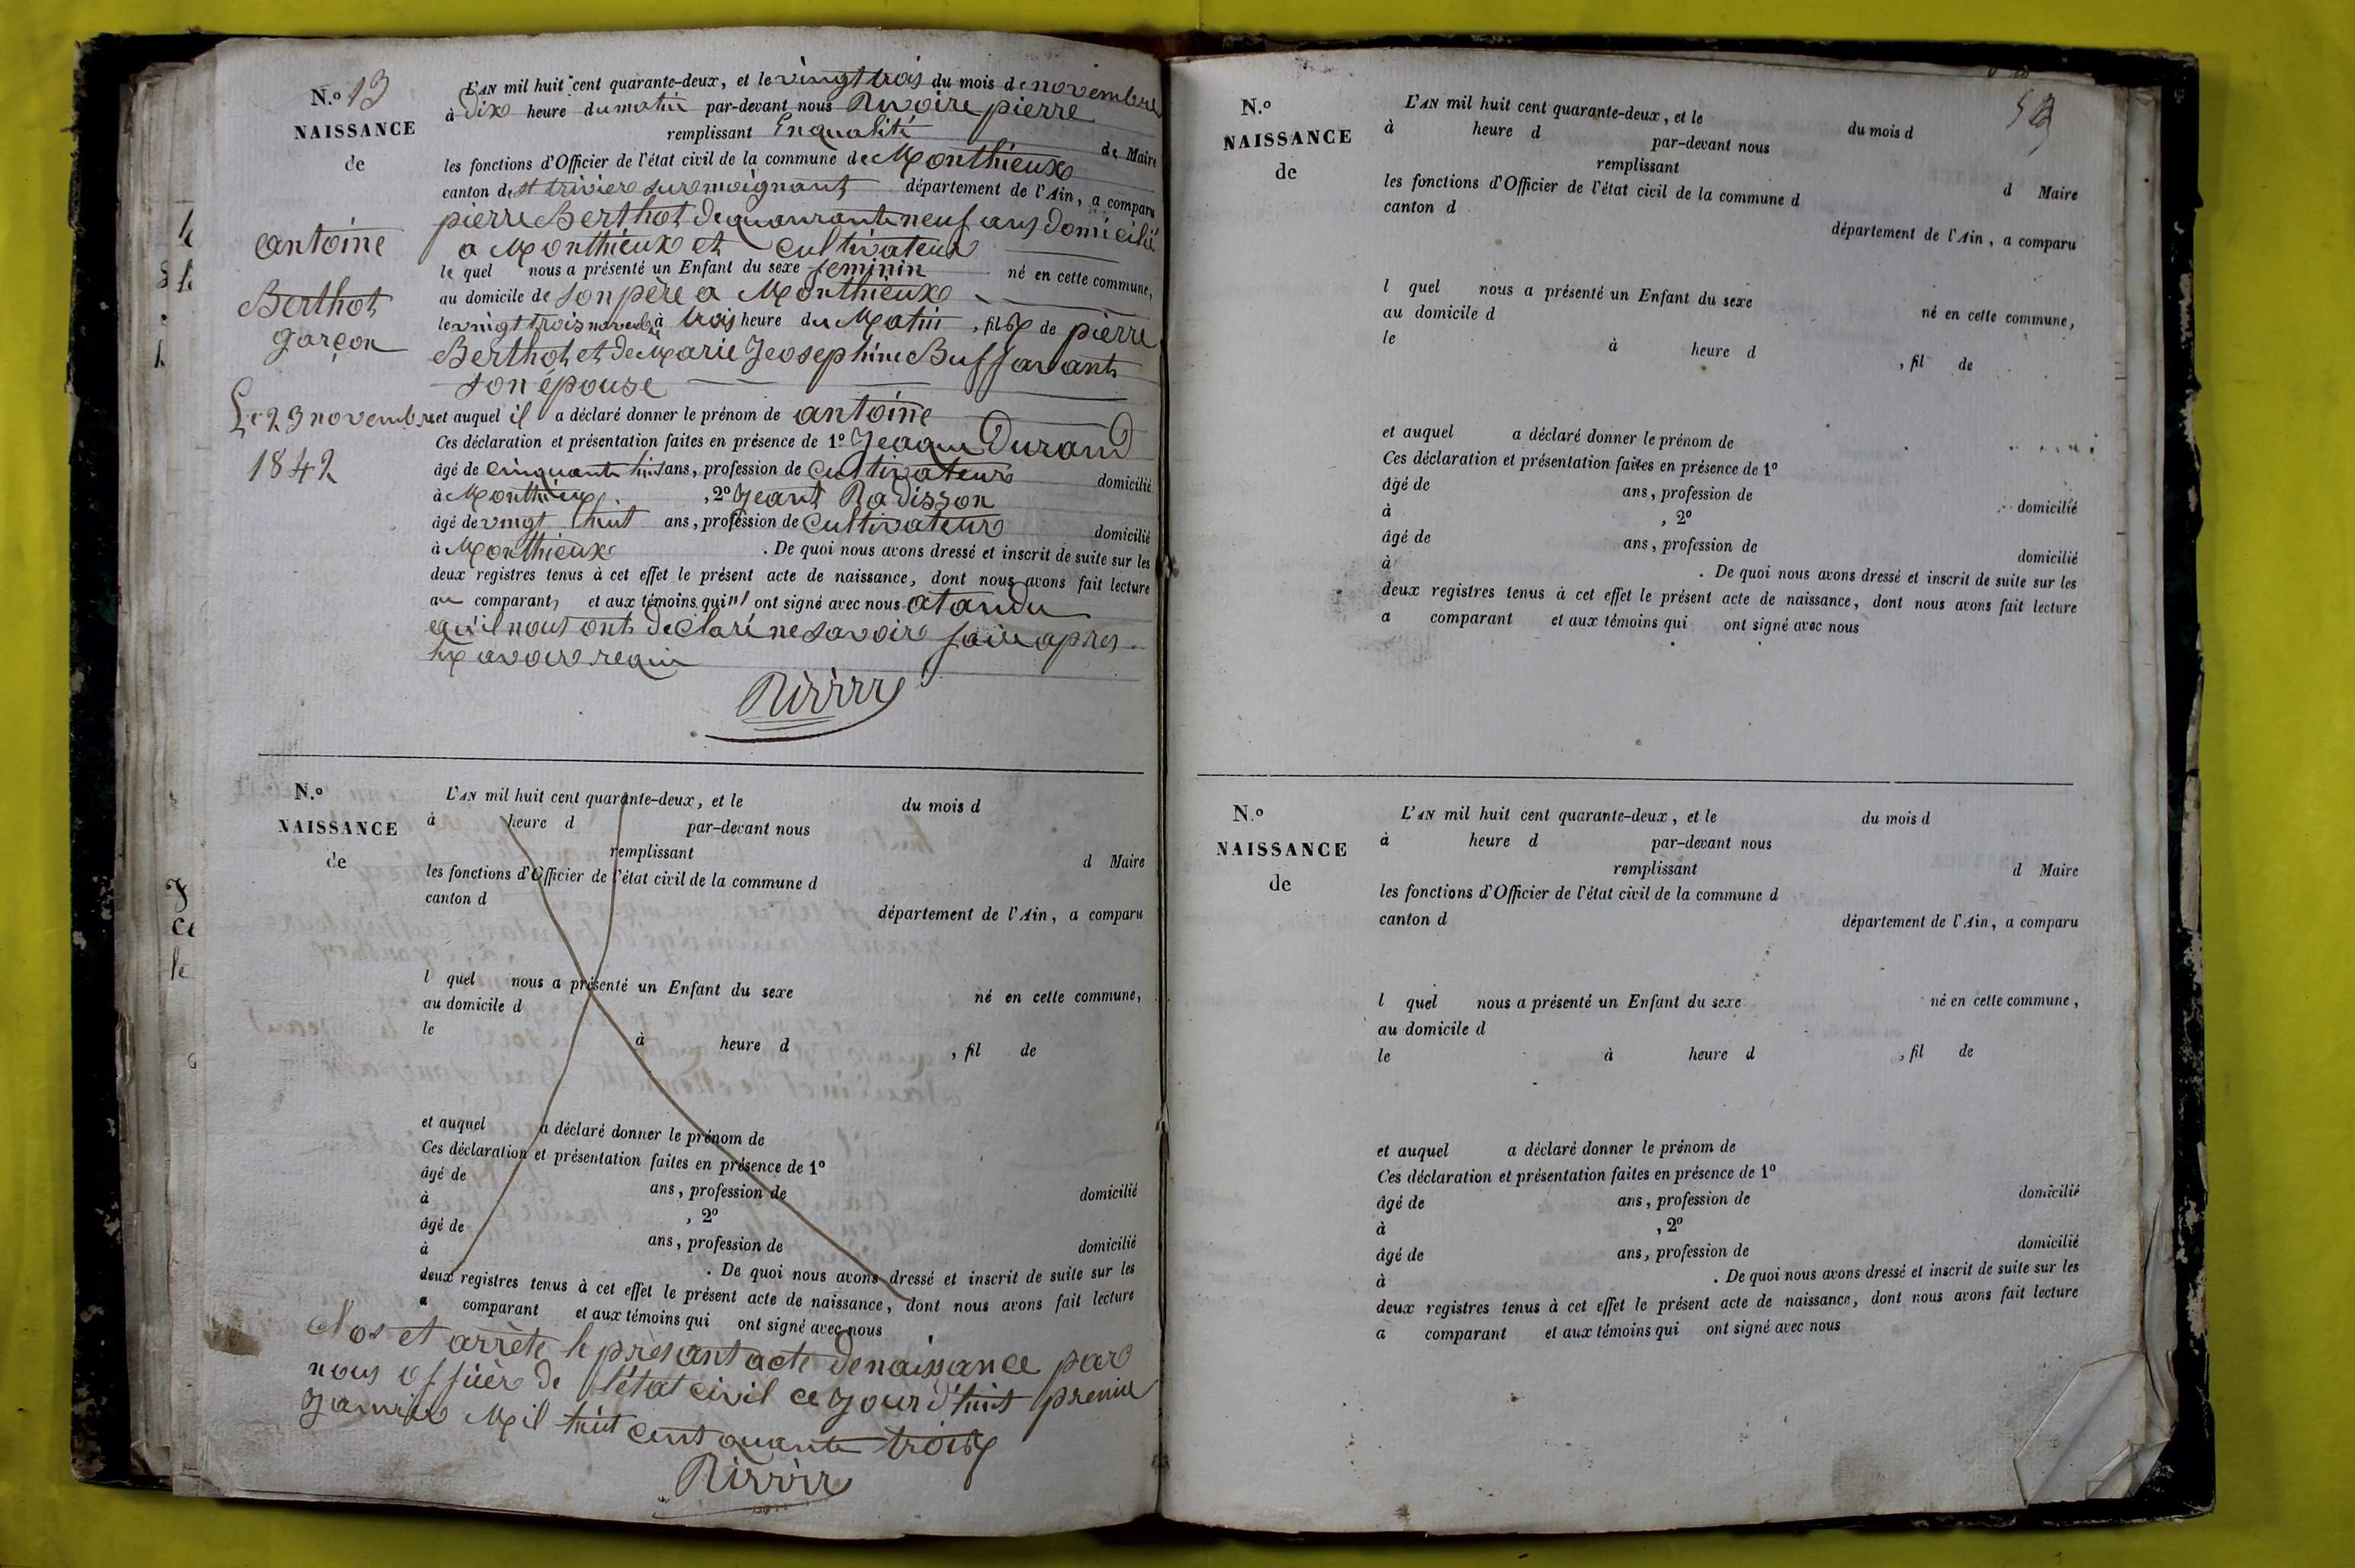 N.º 13
NAISSANCE
de
antoine
Berthot
garçon
Le 23 novembre
1842
L'AN mil huit cent quarante-deux, et le vingt trois du mois de novembre
à dix heure du matin par-devant nous Rivoire pierre
remplissant Enqualité de Maire
les fonctions d'Officier de l'état civil de la commune de Monthieux
canton de st trivier sur moignant département de l'Ain, a comparu
pierre Berthot de quarante neuf ans domicilié
a Monthieux et cultivateur
le quel nous a présenté un Enfant du sexe feminin né en cette commune,
au domicile de son père a Monthieux
le vingt trois novembre à trois heure du Matin, fils de pierre
Berthot et de Marie Jeosephine Buffavant
son épouse
et auquel il a déclaré donner le prénom de antoine
Ces déclaration et présentation faites en présence de 1º Jeaque Durand
âgé de cinquante huit ans, profession de cultivateur domicilié
à Monthieux, 2º Jeant Radisson
âgé de vingt huit ans, profession de cultivateur domicilié
à Monthieux. De quoi nous avons dressé et inscrit de suite sur les
deux registres tenus à cet effet le présent acte de naissance, dont nous avons fait lecture
au comparant, et aux témoins qui n' ont signé avec nous atandu
qu'il nous ont declaré ne savoir faire apres
avoir requi
N.º
NAISSANCE
de
L'AN mil huit cent quarante-deux, et le du mois d
à heure d par-devant nous
remplissant d Maire
les fonctions d'Officier de l'état civil de la commune d
canton d département de l'Ain, a comparu
l quel nous a présenté un Enfant du sexe né en cette commune,
au domicile d
le à heure d , fil de
et auquel a déclaré donner le prénom de
Ces déclaration et présentation faites en présence de 1º
âgé de ans, profession de domicilié
à , 2º
âgé de ans, profession de domicilié
à . De quoi nous avons dressé et inscrit de suite sur les
deux registres tenus à cet effet le présent acte de naissance, dont nous avons fait lecture
a comparant et aux témoins qui ont signé avec nous
Clos et arrète le présant acte de naissance par
nous offiier de l'état civil ce jour d'huit premier
Janvier Mil huit cent quante trois
N.º
NAISSANCE
de
L'AN mil huit cent quarante-deux, et le du mois d
à heure d par-devant nous
remplissant d Maire
les fonctions d'Officier de l'état civil de la commune d
canton d département de l'Ain, a comparu
l quel nous a présenté un Enfant du sexe né en cette commune,
au domicile d
le à heure d , fil de
et auquel a déclaré donner le prénom de
Ces déclaration et présentation faites en présence de 1º
âgé de ans, profession de domicilié
à , 2º
âgé de ans, profession de domicilié
à . De quoi nous avons dressé et inscrit de suite sur les
deux registres tenus à cet effet le présent acte de naissance, dont nous avons fait lecture
a comparant et aux témoins qui ont signé avec nous
N.º
NAISSANCE
de
L'AN mil huit cent quarante-deux, et le du mois d
à heure d par-devant nous
remplissant d Maire
les fonctions d'Officier de l'état civil de la commune d
canton d département de l'Ain, a comparu
l quel nous a présenté un Enfant du sexe né en cette commune,
au domicile d
le à heure d , fil de
et auquel a déclaré donner le prénom de
Ces déclaration et présentation faites en présence de 1º
âgé de ans, profession de domicilié
à , 2º
âgé de ans, profession de domicilié
à . De quoi nous avons dressé et inscrit de suite sur les
deux registres tenus à cet effet le présent acte de naissance, dont nous avons fait lecture
a comparant et aux témoins qui ont signé avec nous